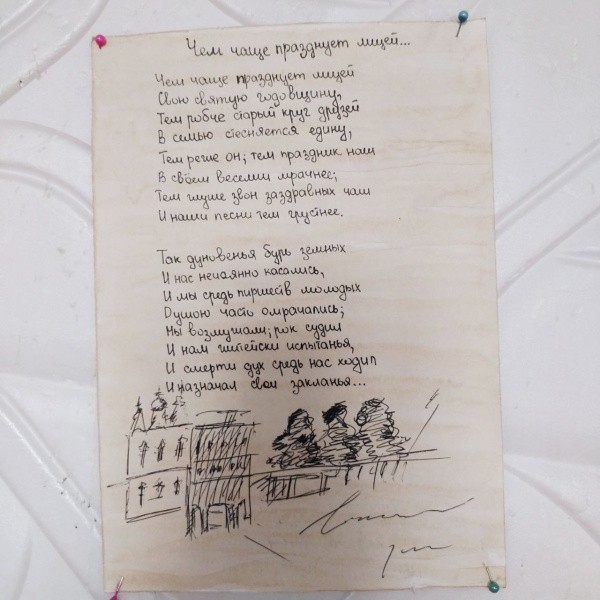 Чем чаще празднует лицей...
Чем чаще празднует лицей
Свою святую годовщину,
Тем робче старый круг друзей
В семью стесняется едину,
Тем реже он; тем праздник наш
В своём веселии мрачнее;
Тем глуше звон заздравных чаш
И наши песни тем грустнее.
Так дуновенья бурь земных
И нас нечаянно касались,
И мы средь пиршеств молодых
Душою часто омрачались;
Мы возмужали; рок судил
И нам житейски испытанья,
И смерти дух средь нас ходил
И назначал свои закланья...